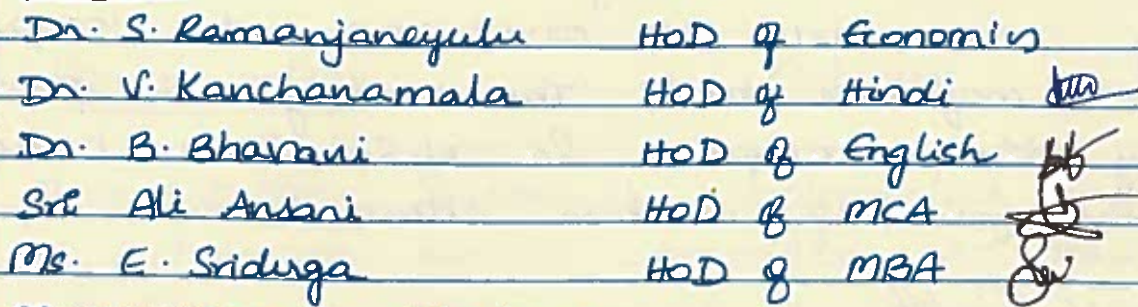 Dr. S. Ramanjaneyulu HoD of Economics
Dr. V. Kanchanamala HoD of Hindi
Dr. B. Bhavani HoD of English
Sri Ali Ansari HoD of MCA
Ms. E. Sriduga HoD of MBA